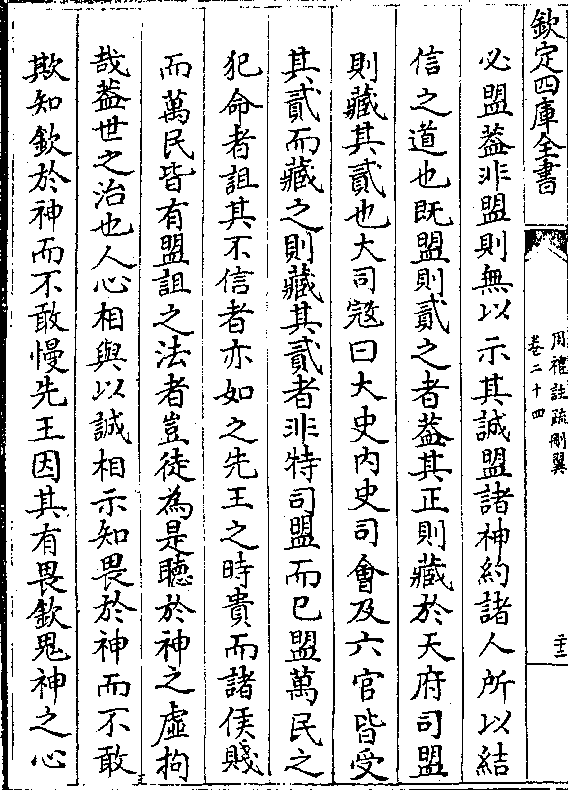 欽定四庫全書
周禮註疏刪翼
卷二十四
必盟蓋非盟則無以示其誠盟諸神約諸人所以結
信之道也既盟則貳之者蓋其正則藏於天府司盟
則藏其貳也大司寇曰大史内史司會及六官皆受
其貳而藏之則藏其貳者非特司盟而已盟萬民之
犯命者詛其不信者亦如之先王之時貴而諸侯賤
而萬民皆有盟詛之法者豈徒為是聽於神之虛拘
哉葢世之治也人心相與以誠相示知畏於神而不敢
欺知欽於神而不敢慢先王因其有畏欽鬼神之心